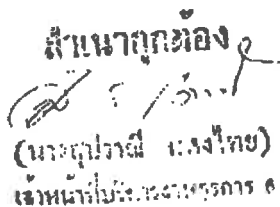 สำเนาถูกต้อง
(นางสุปราณี แสงไทย)
เจ้าหน้าที่บริหารงานธุรการ ๕